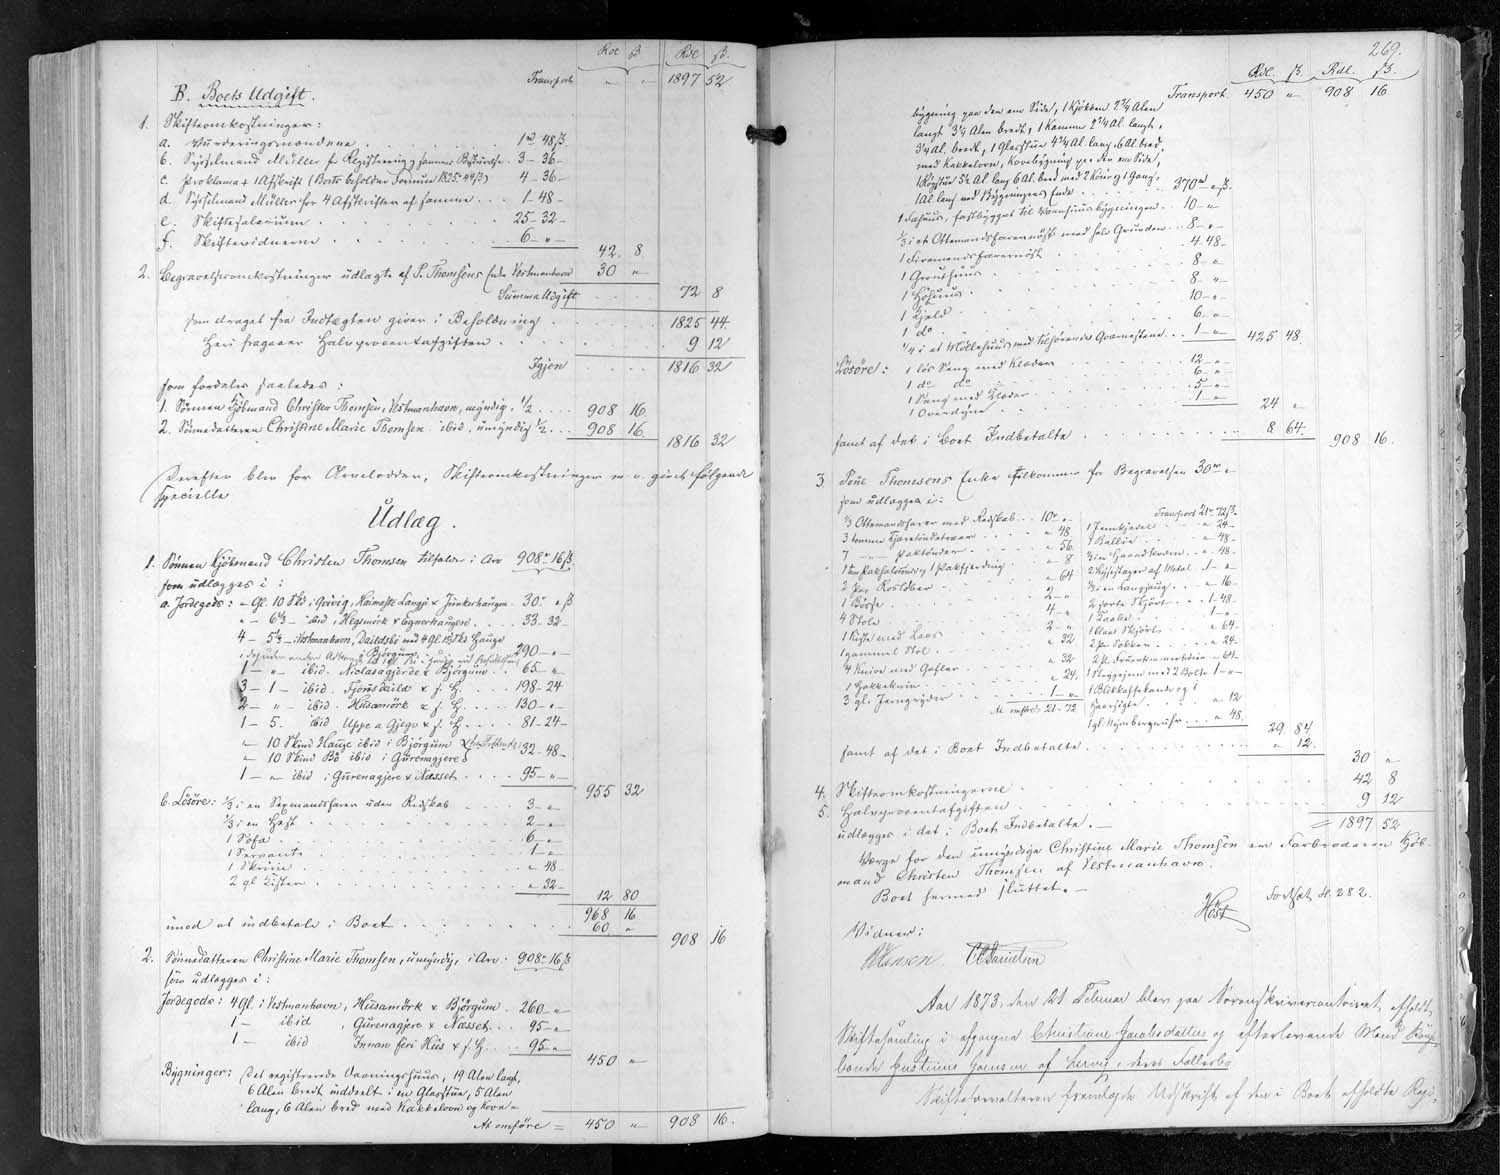 Rdl ß Rdl ß
Transport „ „ 1897 52
B. Boets Udgift.
1. Skifteomkostninger:
a. Vurderingsmændene 1 rd 48 ß
b. Sysselmand Müller f. Registrering 3 - 36 -
c. Proklama + 1 Afskrift (Boets beholdne Formue 1825 - 44 ß) 4 - 36 -
d. Sysselmand Müller for 4 Afskrifter af samme 1 - 48 -
e. Skiftesalarium 25 - 32 -
f. Skiftevidnerne 6 - „ -
42 8
2. Begravelsesomkostninger udlagte af P. Thomsens Enke Vestmanhavn 30 „
Summa Udgift 72 8
som draget fra Indtægten giver i Beholdning 1825 44
Heri fragaaer Halvprocentafgiften 9 12
Igjen 1816 32
som fordeles saaledes:
1. Sönnen Kjöbmand Christen Thomsen, Vestmanhavn, myndig, 1/2 908 16
2. Sønnedatteren Christine Marie Thomsen ibid. umyndig 1/2 908 16
1816 32
Derefter blev for Arvelodder, Skifteomkostninger m. v. gjort følgende
specielle
Udlæg.
1. Sønnen Kjöbmand Christen Thomsen tilfalder i Arv 908 rd 16 ß
som udlægges i:
a. Jordegods: „ Gl. 10 Skd i Qvivig, Heimoste Langji & Jinkerhaugen 30 rd „ ß
„ - 6 2/3 - ibid i Hegsmörk & Egnerhaugen 33 - 32 -
4 - 5 1/3 - i Vestmanhavn, Daildsbi med 4 Gl. 13 Sks Hauge
i Björgum 290 - „
1 - „ ibid. Niclasagjerde & Björgum 65 - „
3 - 1 - ibid. Fjönsdaild & f. H. 198 - 24
2 - „ - ibid. Husamörk & f. H. 130 - „
1 - 5. ibid Uppe a Gjego & f. H. 81 - 24 -
„ 10 Skind Hauge ibid i Björgum 32 - 48 -
„ 10 Skind Bö ibid i Gurenagjere
1 - „ ibid i Gurenagjere & Næsset 95 - „
955 32
b. Lösöre: 1/3 i en Sexmandsfarer uden Redskab 3 - „
1/3 i en Hest 2 - „
1 Sofa 6 - „
1 Servante 1 - „
1 Skrin „ 48
2 gl. Kister „ 32 -
12 80
968 16
imod at indbetale i Boet 60 „
908 16
2. Sønnedatteren Christine Marie Thomsen, umyndig, i Arv: 908 rd 16 ß
som udlægges i:
Jordegods: 4 Gl. i Vestmanhavn, Husamörk & Björgum 260 „
1 - ibid, Gurenagjere & Næsset 95 - „
1 - ibid Innan feri Hus & f. H. 95 - „
450 „
Bygninger: Det registrerede Vaaningshuus, 19 Alen langt,
6 Alen bredt inddeelt i en Glasstue, 5 Alen
lang, 6 Alen bred med Kakkelovn og Kove-
At omföre = 450 „ 908 16.
269.
Rdl. ß. Rdl. ß.
Transport 450 „ 908 16
bygning paa den ene Side, 1 Kjökken 2 3/4 Alen
langt 3 1/4 Alen bredt, 1 Kammer 2 3/4 Al. langt,
3 1/4 Al. bredt, 1 Glasstue 4 3/4 Al. lang 6 Al. bred,
med Kakkelovn, Kovebygning paa den ene Side,
1 Rögstue 5 1/2 Al. lang 6 Al. bred med 2 Kover og 1 Gang,
1 Al. lang ved Bygningens Ende 370 rd „ ß.
1 Fæhuus, fastbygget til Vaaningshuusbygningen 10 - „
1/3 i et Ottemandsfarernöst med halv Grunden 8 - „
1 Firemandsfarernöst 4. 48 -
1 Grouthuus 8 - „
1 Höhuus 8 - „
1 Hjeld 10 - „
1 do 6 - „
1/4 i et Möllehuus med tilhørende Qværnstene 1 - „
425 48.
Lösöre: 1 lös Seng med Klæder 12 - „
1 do do 6 - „
1 Seng med Klæder 5 - „
1 Overdyne 1 - „
24 „
samt af det i Boet Indbetalte 8 64.
908 16.
3. Poul Thomsens Enke tilkommer for Begravelsen 30 rd „
som udlægges i:
1/3 Ottemandsfarer med Redskab 10 rd „
3 tomme Tjæretöndetræer „ 48.
7 Saltönder „ 56.
„ 8
2 Par Rosklober „ 64
1 Börse 2 - „
4 Stole 4 - „
1 Kiste med Laas 2 - „
1 gammel Stol „ 32
4 Knive med Gafler „ 32
1 Hakkekniv „ 24.
3 gl. Jerngryder 1 - „
At omføre: 21 - 72
Transport 21 rd 72 ß.
1 Jernkjedel „ 24 -
1 Ballie „ 48 -
„ 48 -
2 Lysestager af Metal 1 - „
„ 16 -
2 sorte Skjört 1 - 48
1 Kaabe 1 - „
„ 64 -
2 Pr. Sokker „ 24 -
„ 64 -
1 Sluggejern med 2 Bolte 1 - „
1 Blikkaffekande og 1
„ 12
1 gl. Nürnbergeruhr „ 48.
29. 84.
samt af det i Boet Indbetalte „ 12.
30 „
4. Skifteomkostningerne 42 8
5. Halvprocentafgiften 9 12
udlægges i det i Boet Indbetalte. - = 1897 52
Værge for den umyndige Christine Marie Thomsen er Farbroderen Kjöb-
mand Christen Thomsen af Vestmanhavn.
Boet hermed sluttet. -
Fortsat S. 282.
Höst
Vidner:
Hansen. C C Danielsen
Aar 1873, den 21 Februar blev paa Sorenskrivercontoiret afholdt
Skiftesamling i afgangne Christine Jacobsdatter og efterlevende Mand Konge-
bonde Gustinus Joensen af Lervig, deres Fællesbo
Skifteforvalteren fremlagde Udskrift af den i Boet afholdte Regi-